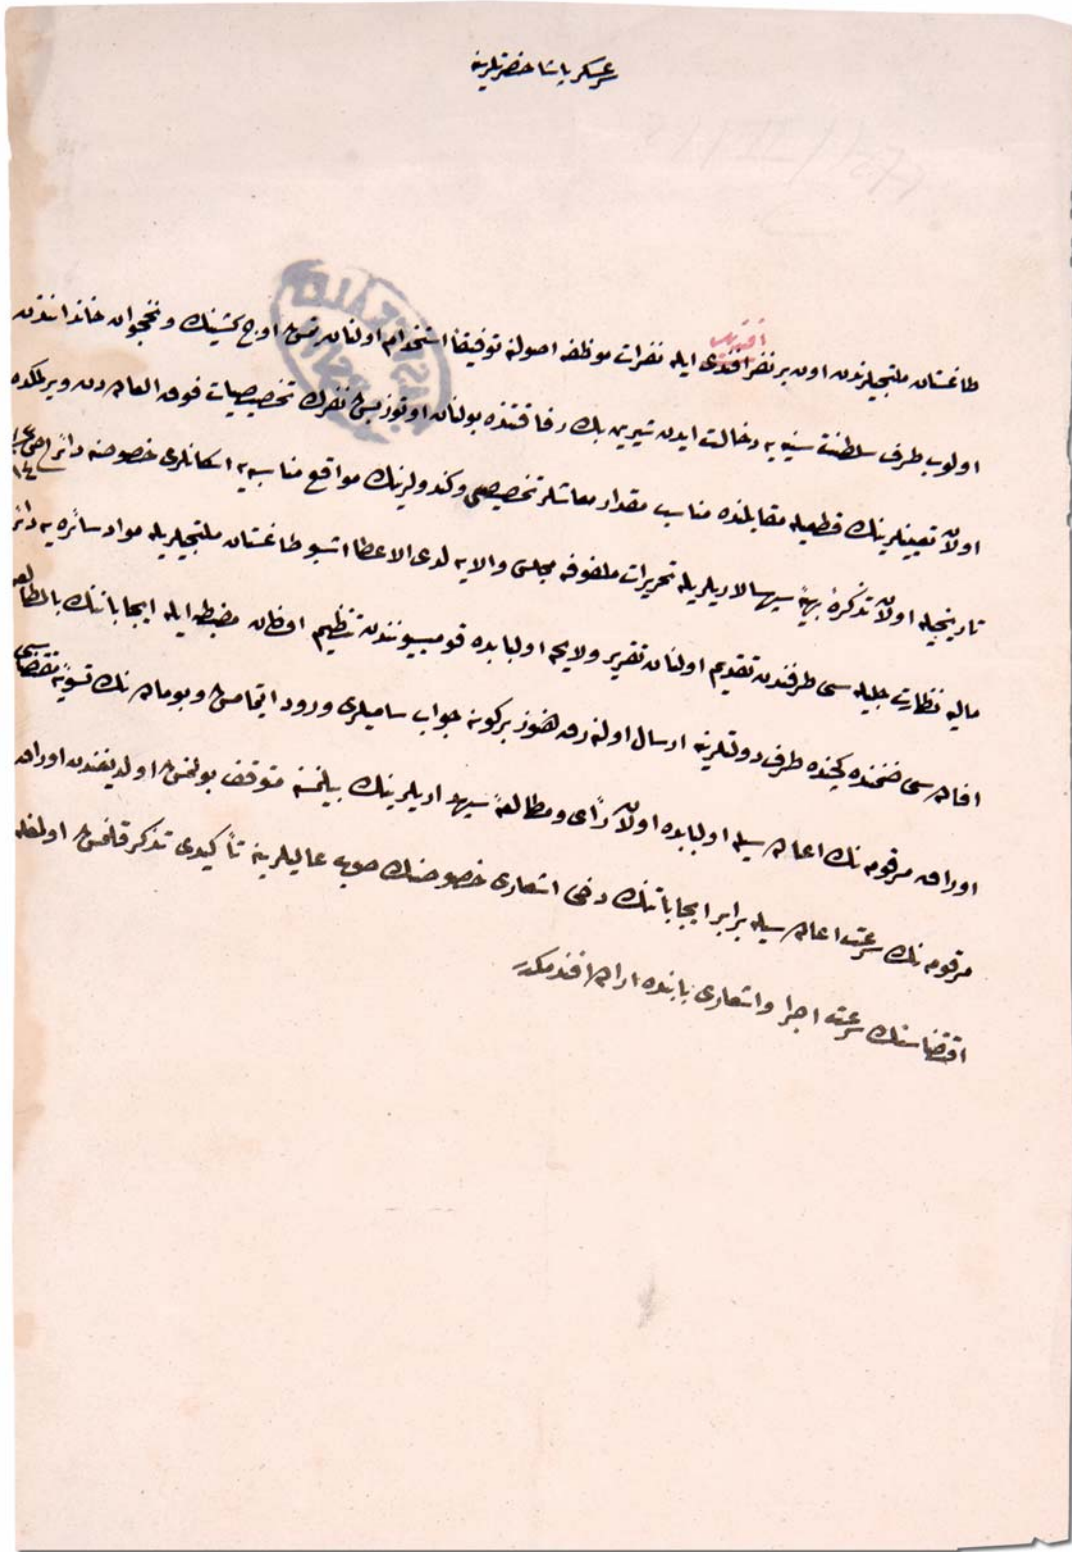 سرعسکر پاشا حضرتلرینه
افندیلر
طاغستان ملتجیلرندن اون بر نفر افندی ایله نفرات موظفه اصولنه توفیقاً استخدام اولنان اوچ کشینك و نخجوان خانداننندن
اولوب طرف سلطنت سنیه یه دخالت ایدن شیرین بك رفاقتنده بولنان اوتوز بش نفرك تخصیصات فوق العاده دن ویرلمکده
اولان تعیینلرینك قطعیله مقابلنده مناسب مقدار معاشلر تخصیصی و کندولرینك مواقع مناسبه یه اسکانلری خصوصنه دائر
تاریخیله اولان تذکرهٔ بهیهٔ سپهسالاریلریله تحریرات ملفوفه مجلس والایه لدی الاعطا اشبو طاغستان ملتجیلریله مواد سائره یه دائر
مالیه نظارت جلیله سی طرفندن تقدیم اولنان تقریر ولایحه اولبابده قومیسیوندن تنظیم اولنان مضبطه ایله ایجاباتنك بالمطالعه
افاده سی ضمننده کچنده طرف دولتلرینه ارسال اولنه رق هنوز بر کونه جواب سامیلری ورود ایتمامش و بو ماده نك تسویهٔ مقتضاسی
اوراق مرقومه نك اعاده سیله اولبابده اولان رأی و مطالعهٔ سپهداریلرینك بیلنمسنه متوقف بولنمش اولدیغندن اوراق
مرقومه نك سرعت اعاده سیله برابر ایجاباتنك دخی اشعاری خصوصنك صوب عالیلرینه تأکیدی تذکر قلنمش اولمغله
اقتضاسنك سرعت اجرا و اشعاری بابنده اراده افندمکدر